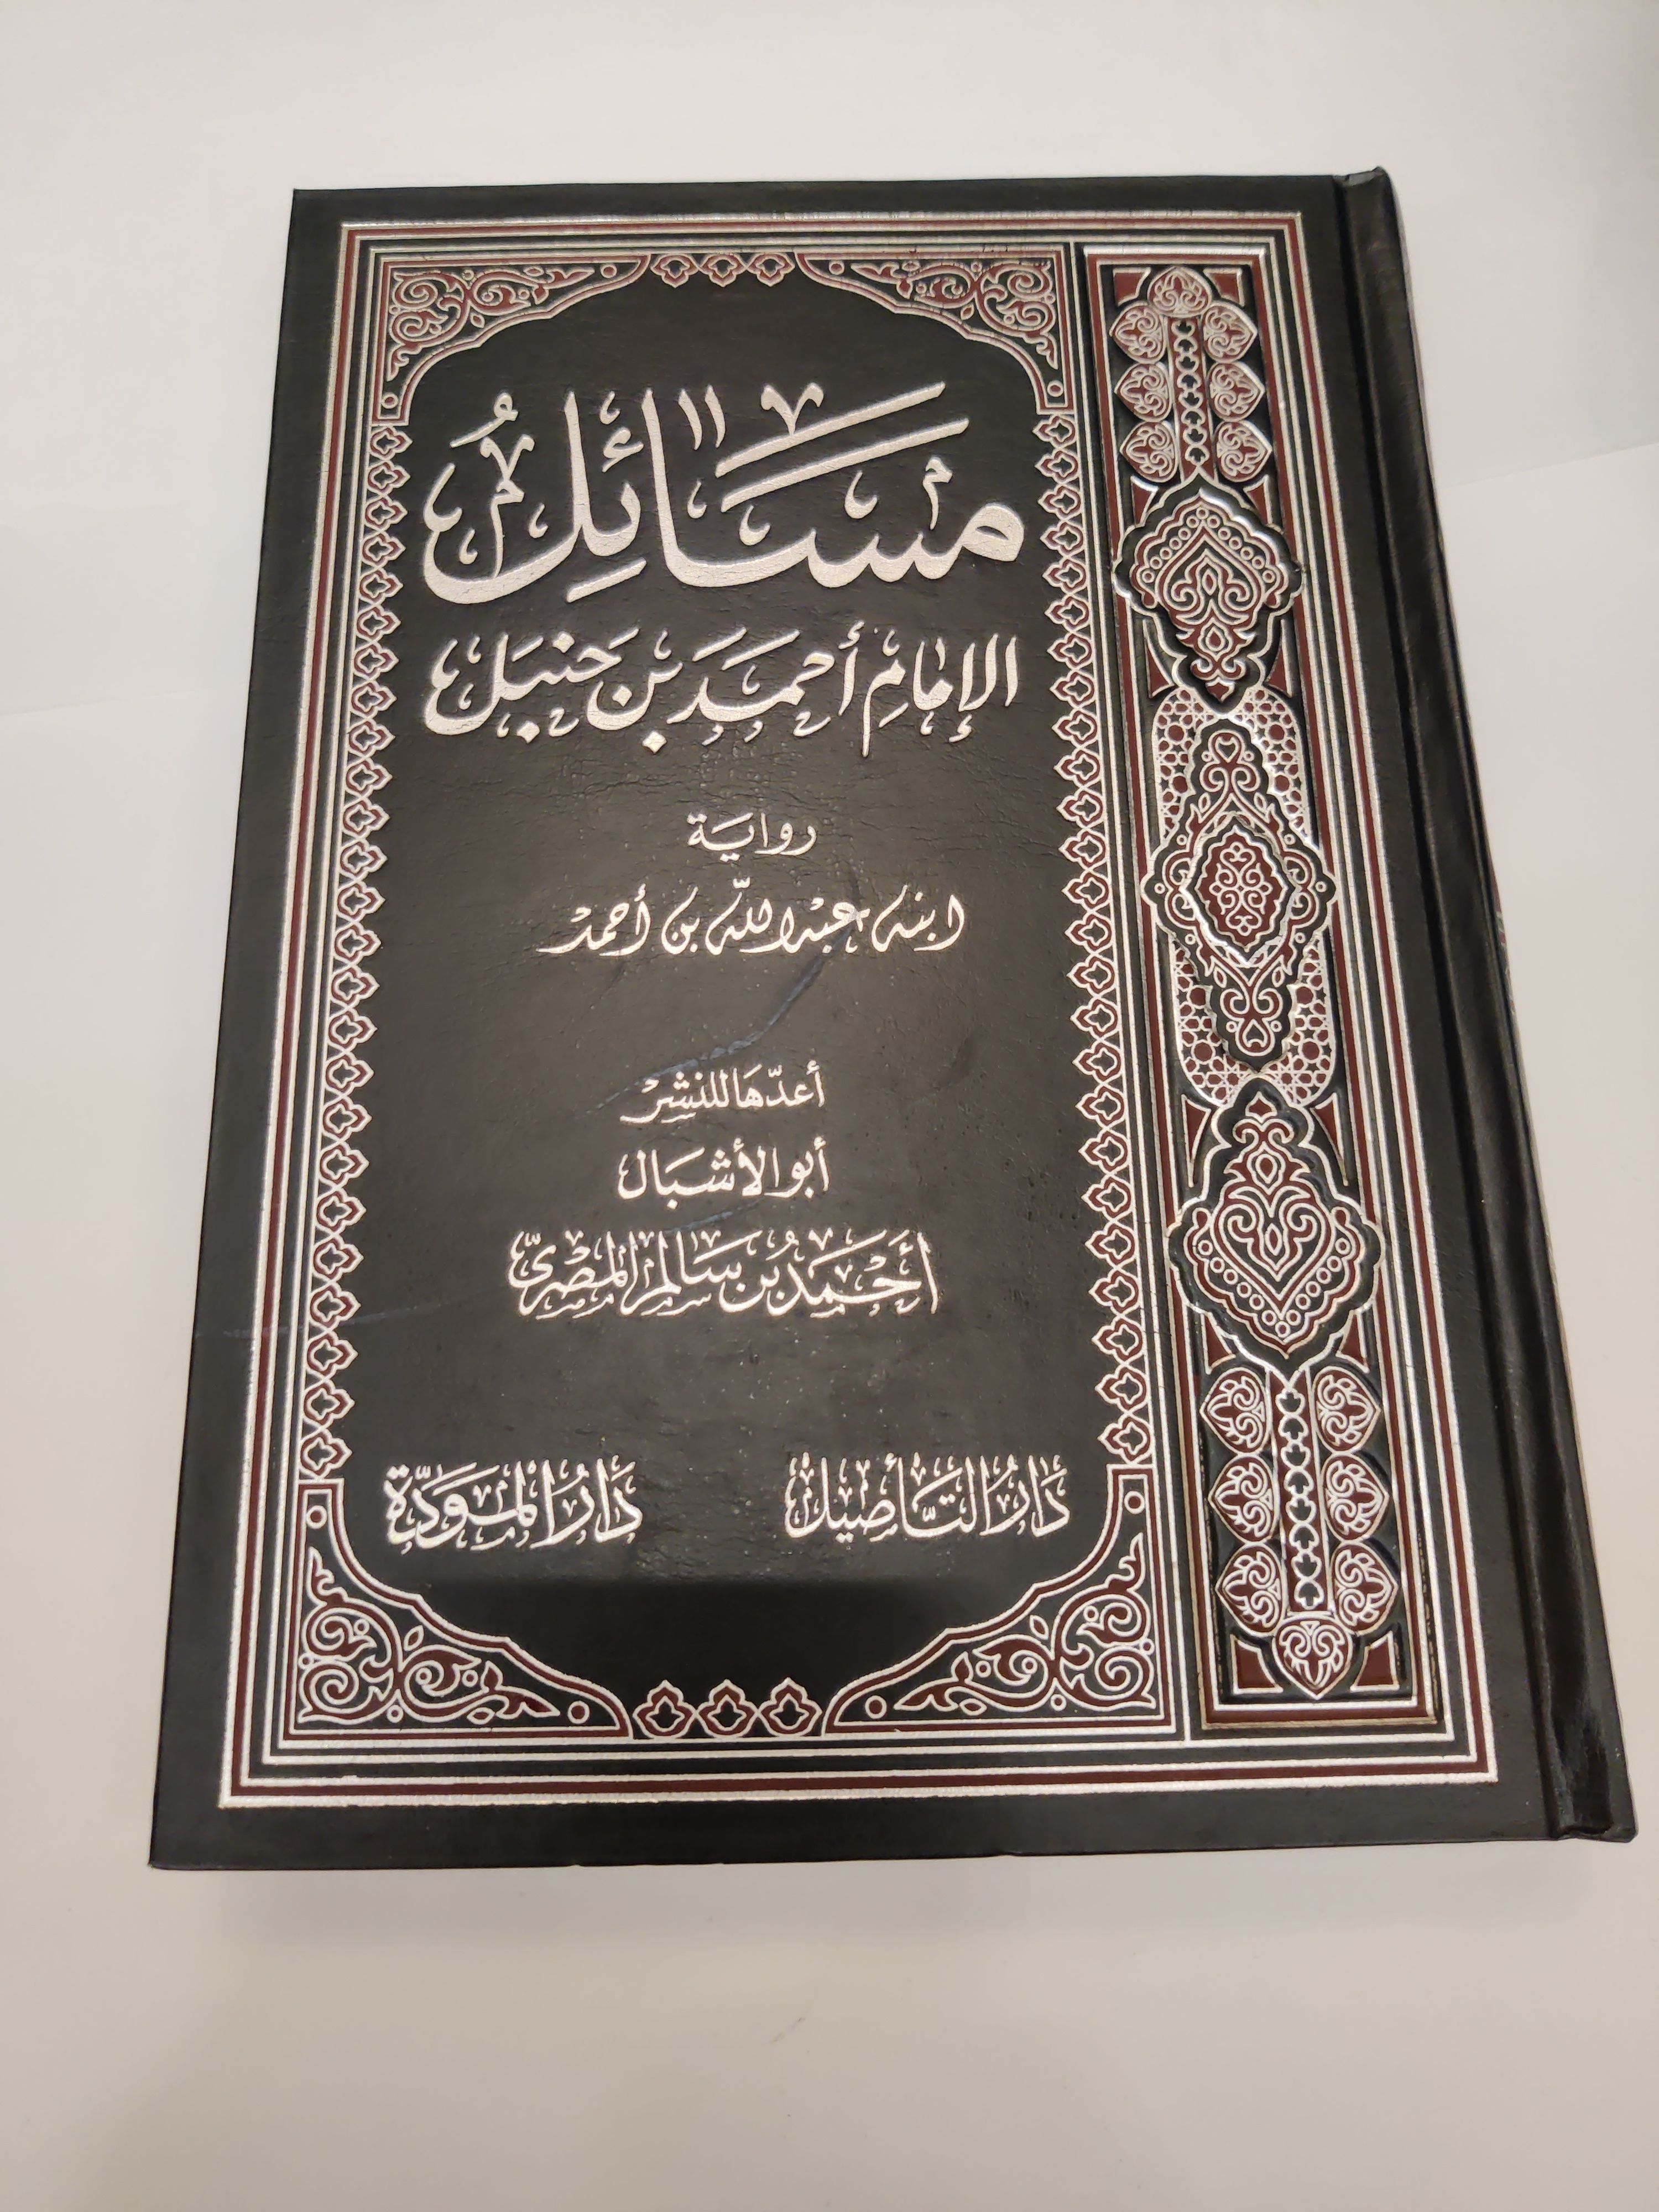 مسائل
الإمام أحمد بن حنبل
رواية
ابنه عبد الله بن أحمد
أعدها للنشر
أبو الأشبال
أحمد بن سالم المصري
دار التأصيل
دار المودة